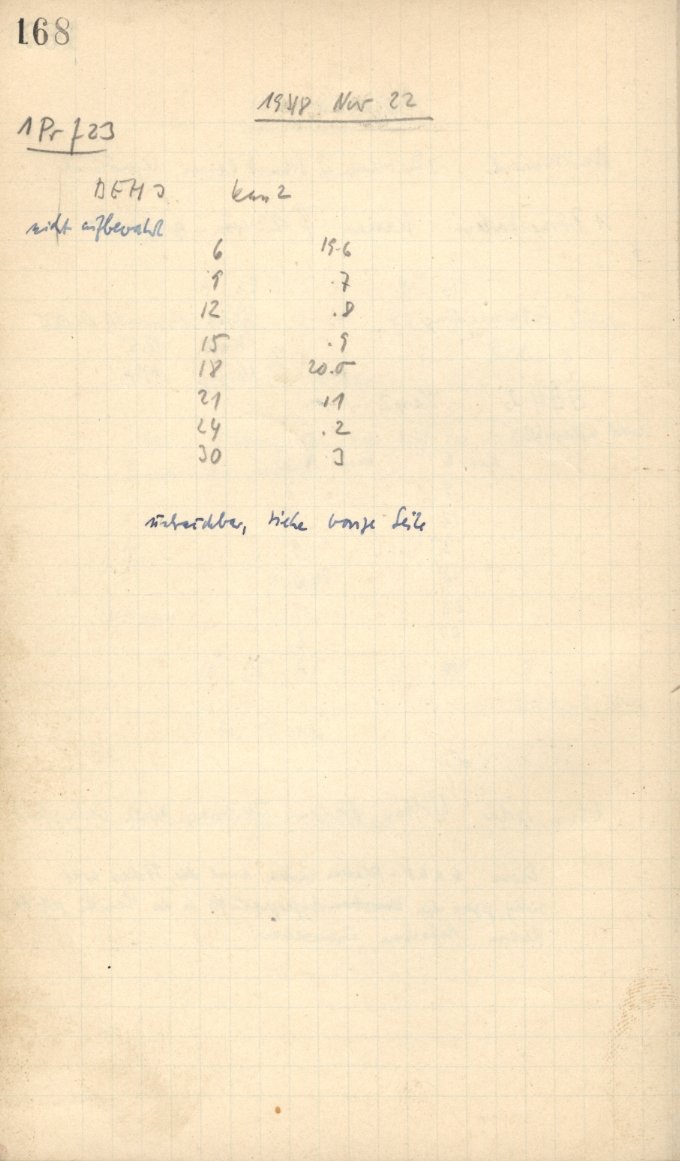 168
1948 Nov 22
1 Pr f 23
DEMJ
nicht aufbewahrt
6 19.6
9 .7
12 .8
15 .9
18 20.0
21 .1
24 .2
30 3
siehe vorige Seite